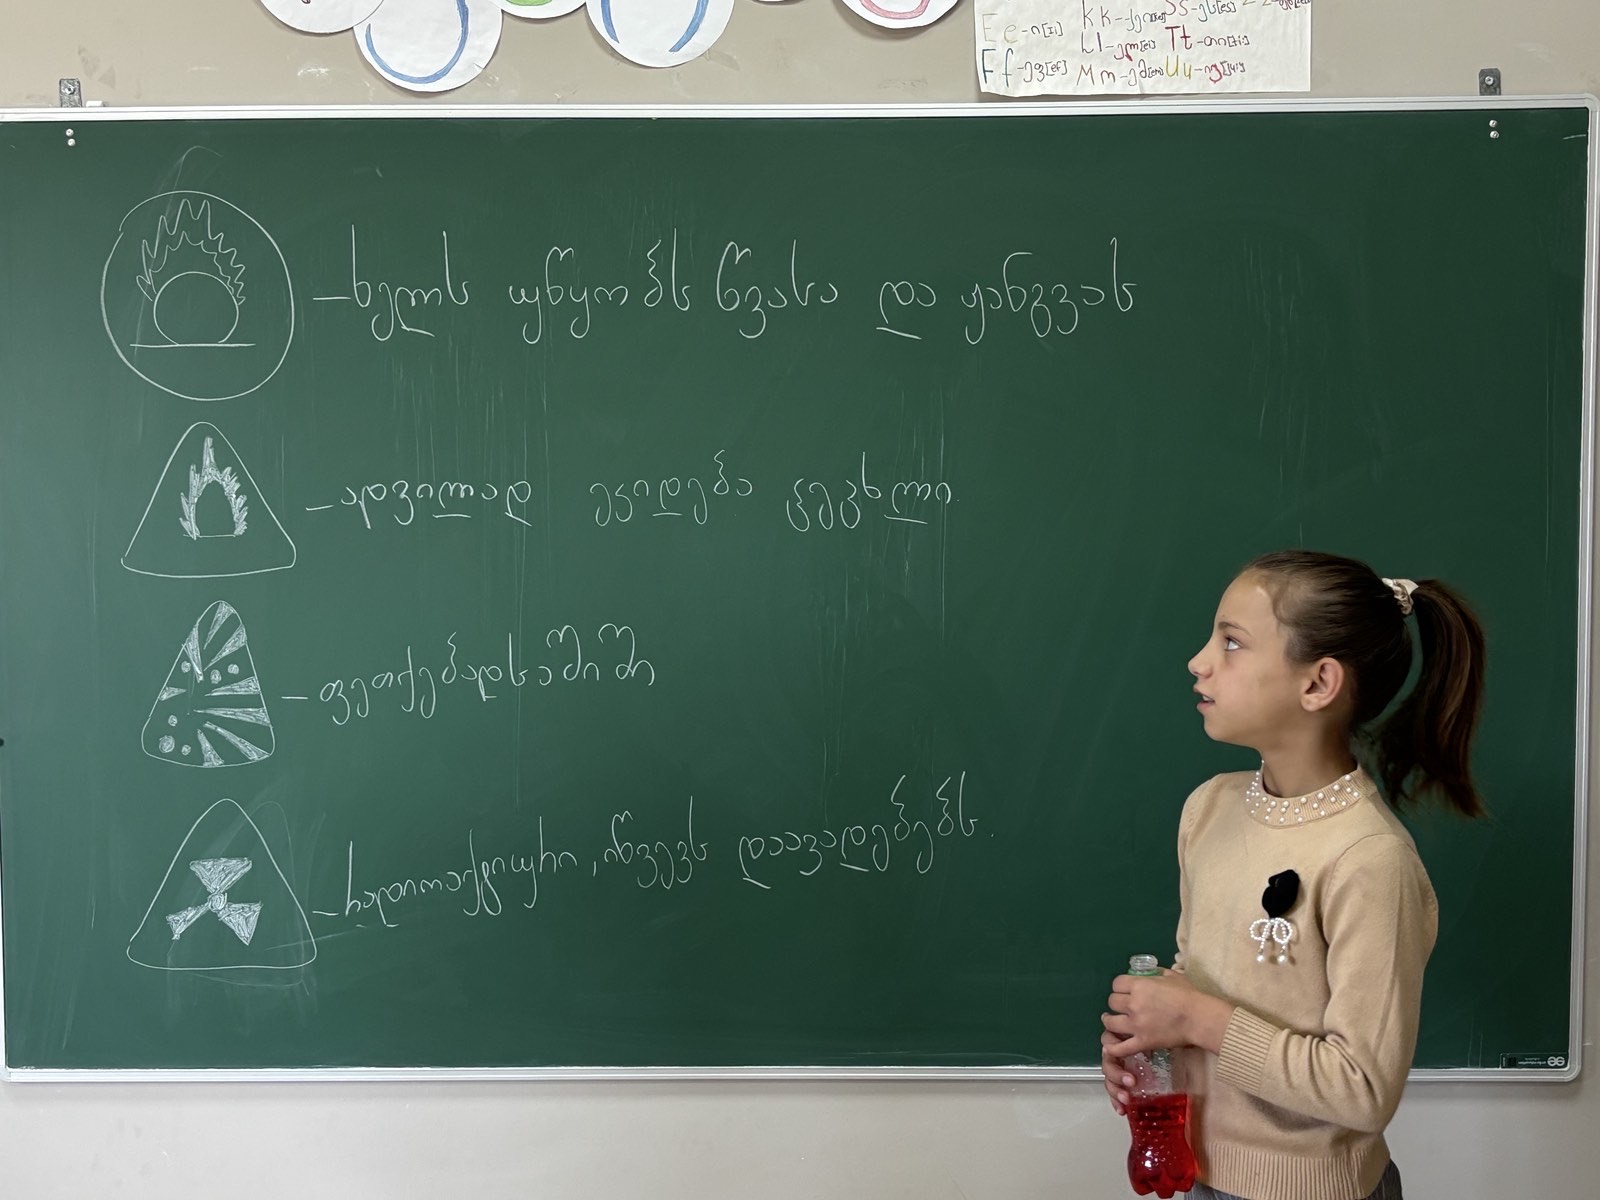 Ee-ი[i:] Kk-ქეი[kei] Ss-ეს[es]
Ff-ეფ[ef] Ll-ელ[el] Tt-თი[ti:]
Mm-ემ[em] Uu-იუ[ju:]
-ხელს უწყობს წვასა და ჟანგვას
-ადვილად ეკიდება ცეცხლი.
-ფეთქებადსაშიში
-რადიოაქტიური, იწვევს დაავადებებს.